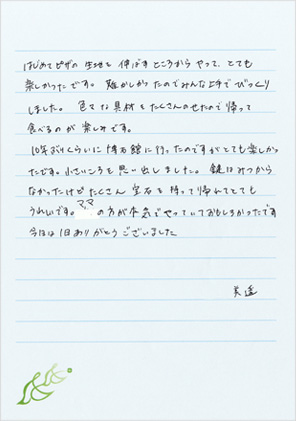 はじめてピザの生地を伸ばすところからやって、とても
楽しかったです。難しかったのでみんな上手でびっくり
しました。色々な具材をたくさんのせたので帰って
食べるのが楽しみです。
10年ぶりくらいに博石館に行ったのですがとても楽しかっ
たです。小さいころを思い出しました。鏡はみつから
なかったけどたくさん宝石を持って帰れてとても
うれしいです。ママの方が本気でやっていておもしろかったです
今日は1日ありがとうございました
美遥